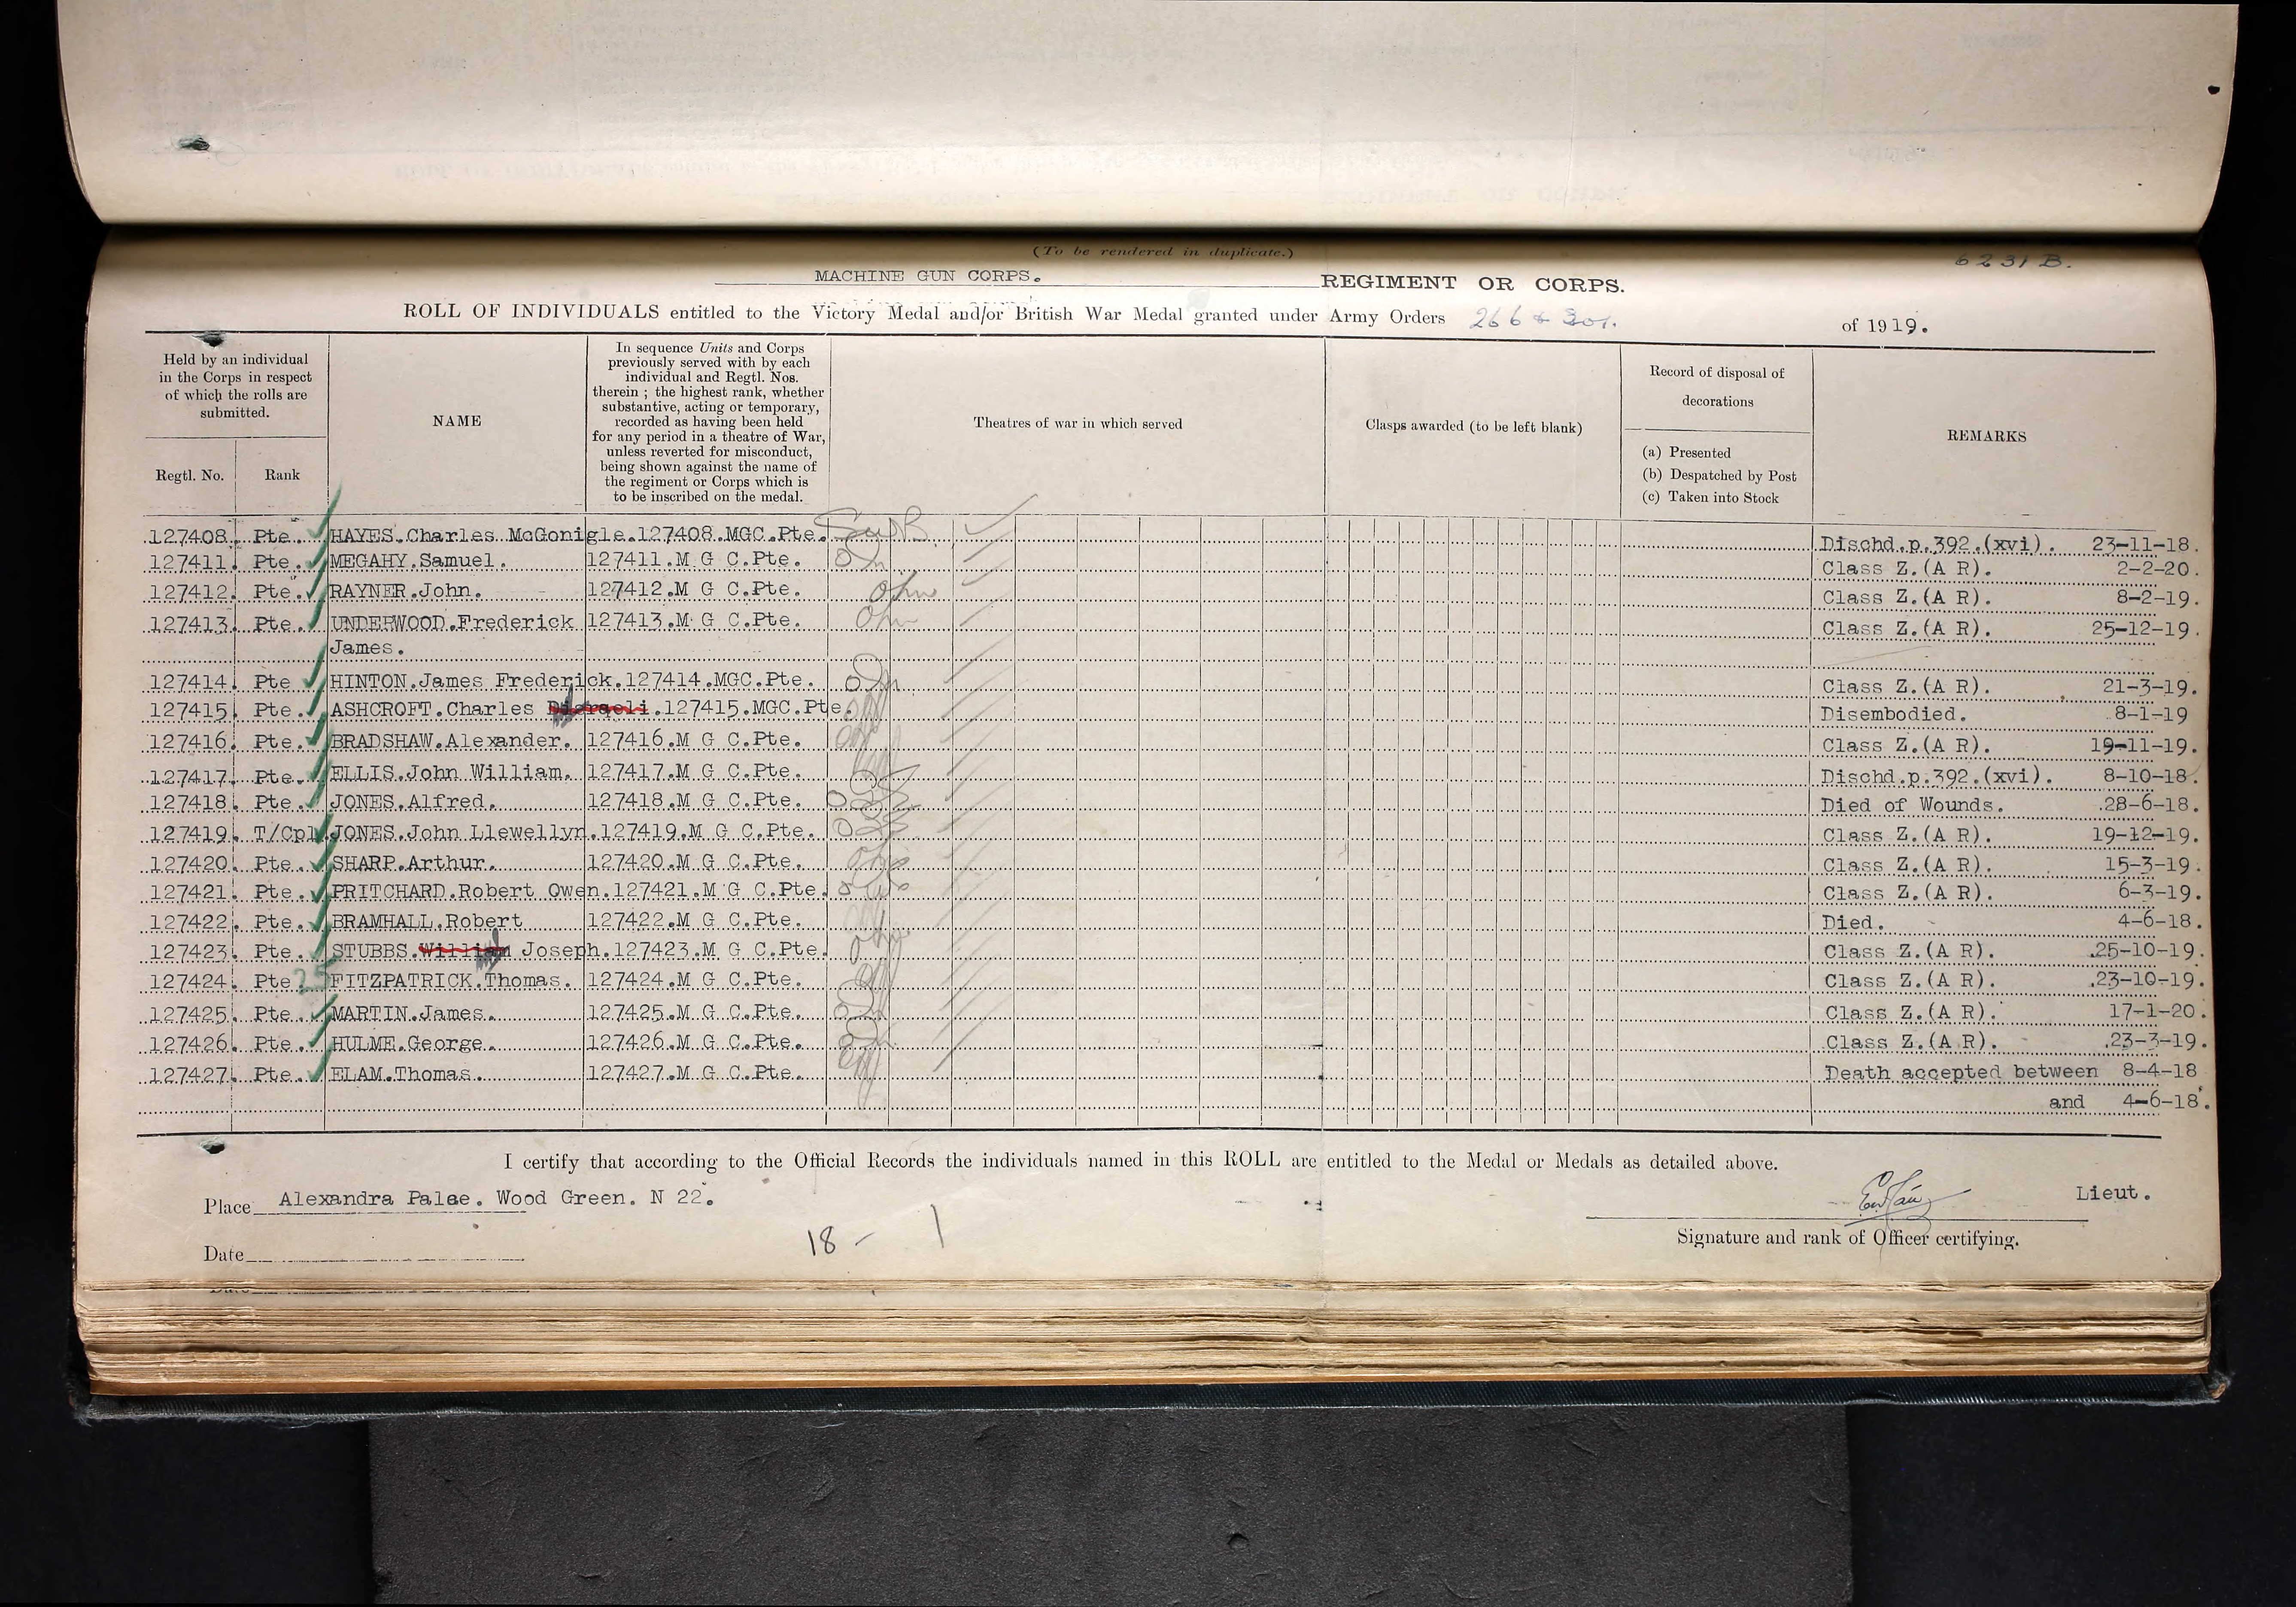 (To be rendered in duplicate.)
6231 B.
MACHINE GUN CORPS. REGIMENT OR CORPS.
ROLL OF INDIVIDUALS entitled to the Victory Medal and/or British War Medal granted under Army Orders 266 & 301. of 1919.
Held by an individual
in the Corps in respect
of which the rolls are
submitted.
Regtl. No. Rank
NAME
In sequence Units and Corps
previously served with by each
individual and Regtl. Nos.
therein ; the highest rank, whether
substantive, acting or temporary,
recorded as having been held
for any period in a theatre of War,
unless reverted for misconduct,
being shown against the name of
the regiment or Corps which is
to be inscribed on the medal.
Theatres of war in which served
Clasps awarded (to be left blank)
Record of disposal of
decorations
(a) Presented
(b) Despatched by Post
(c) Taken into Stock
REMARKS
127408. Pte. HAYES.Charles McGonigle.127408.MGC.Pte. Dischd.p.392.(xvi). 23-11-18.
127411. Pte. MEGAHY.Samuel. 127411.M G C.Pte. Class Z.(A R). 2-2-20.
127412. Pte. RAYNER.John. 127412.M G C.Pte. Class Z.(A R). 8-2-19.
127413. Pte. UNDERWOOD.Frederick 127413.M G C.Pte. Class Z.(A R). 25-12-19.
James.
127414. Pte HINTON.James Frederick.127414.MGC.Pte. Class Z.(A R). 21-3-19.
127415. Pte. ASHCROFT.Charles Disraeli.127415.MGC.Pte. Disembodied. 8-1-19
127416. Pte. BRADSHAW.Alexander. 127416.M G C.Pte. Class Z.(A R). 19-11-19.
127417. Pte. ELLIS.John William. 127417.M G C.Pte. Dischd.p.392.(xvi). 8-10-18.
127418. Pte. JONES.Alfred. 127418.M G C.Pte. Died of Wounds. 28-6-18.
127419. T/Cpl JONES.John Llewellyn.127419.M G C.Pte. Class Z.(A R). 19-12-19.
127420. Pte. SHARP.Arthur. 127420.M G C.Pte. Class Z.(A R). 15-3-19.
127421. Pte. PRITCHARD.Robert Owen.127421.M G C.Pte. Class Z.(A R). 6-3-19.
127422. Pte. BRAMHALL.Robert 127422.M G C.Pte. Died. 4-6-18.
127423. Pte. STUBBS.William Joseph.127423.M G C.Pte. Class Z.(A R). 25-10-19.
127424. Pte 25 FITZPATRICK.Thomas. 127424.M G C.Pte. Class Z.(A R). 23-10-19.
127425. Pte. MARTIN.James. 127425.M G C.Pte. Class Z.(A R). 17-1-20.
127426. Pte. HULME.George. 127426.M G C.Pte. Class Z.(A R). 23-3-19.
127427. Pte. ELAM.Thomas. 127427.M G C.Pte. Death accepted between 8-4-18
and 4-6-18.
I certify that according to the Official Records the individuals named in this ROLL are entitled to the Medal or Medals as detailed above.
Place Alexandra Palce. Wood Green. N 22.
Lieut.
Signature and rank of Officer certifying.
18 - 1
Date